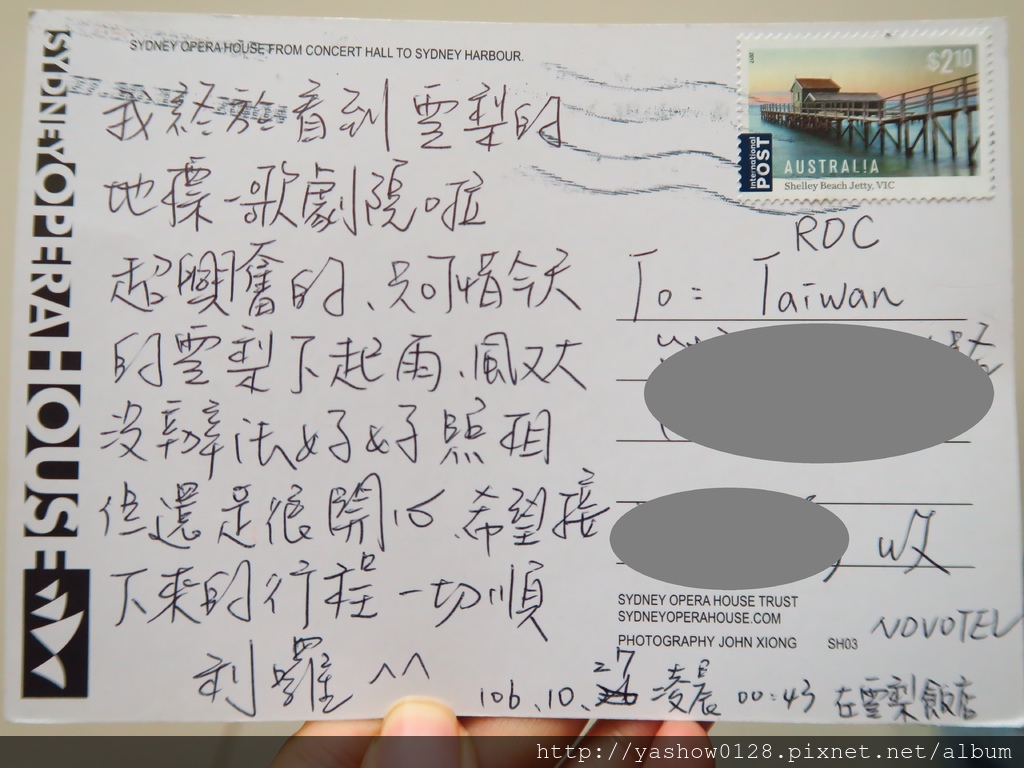 SYDNEY OPERA HOUSE FROM CONCERT HALL TO SYDNEY HARBOUR.
SYDNEY OPERA HOUSE
我終於看到雪梨的
地標-歌劇院啦
超興奮的、只可惜今天
的雪梨下起雨、風又大
沒辦法好好照相
但還是很開心、希望接
下來的行程一切順
利囉 ^^
106.10.27 凌晨 00:43 在雪梨飯店
NOVOTEL
$2.10
2017
International
POST
AUSTRALIA
Shelley Beach Jetty, VIC
ROC
To: Taiwan
收
SYDNEY OPERA HOUSE TRUST
SYDNEYOPERAHOUSE.COM
PHOTOGRAPHY JOHN XIONG SH03
http://yashow0128.pixnet.net/album